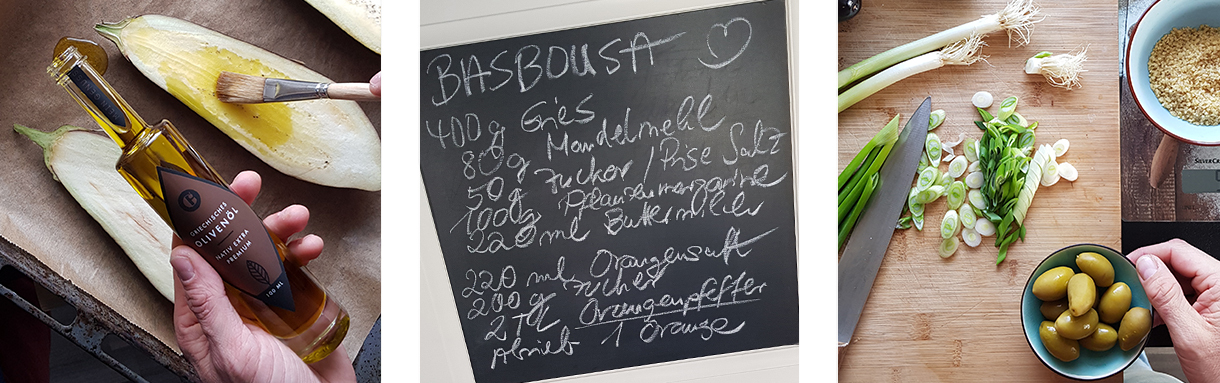 GRIECHISCHES
OLIVENÖL
NATIV EXTRA
PREMIUM
100 ML
BASBOUSA
400g Gries
80g Mandelmehl
50g Zucker / Prise Salz
100g Pflanzenmargarine
220 ml Buttermilch
220 ml Orangensaft
200g Zucher
2 TL Orangenpfeffer
Abrieb 1 Orange
SILVERCR